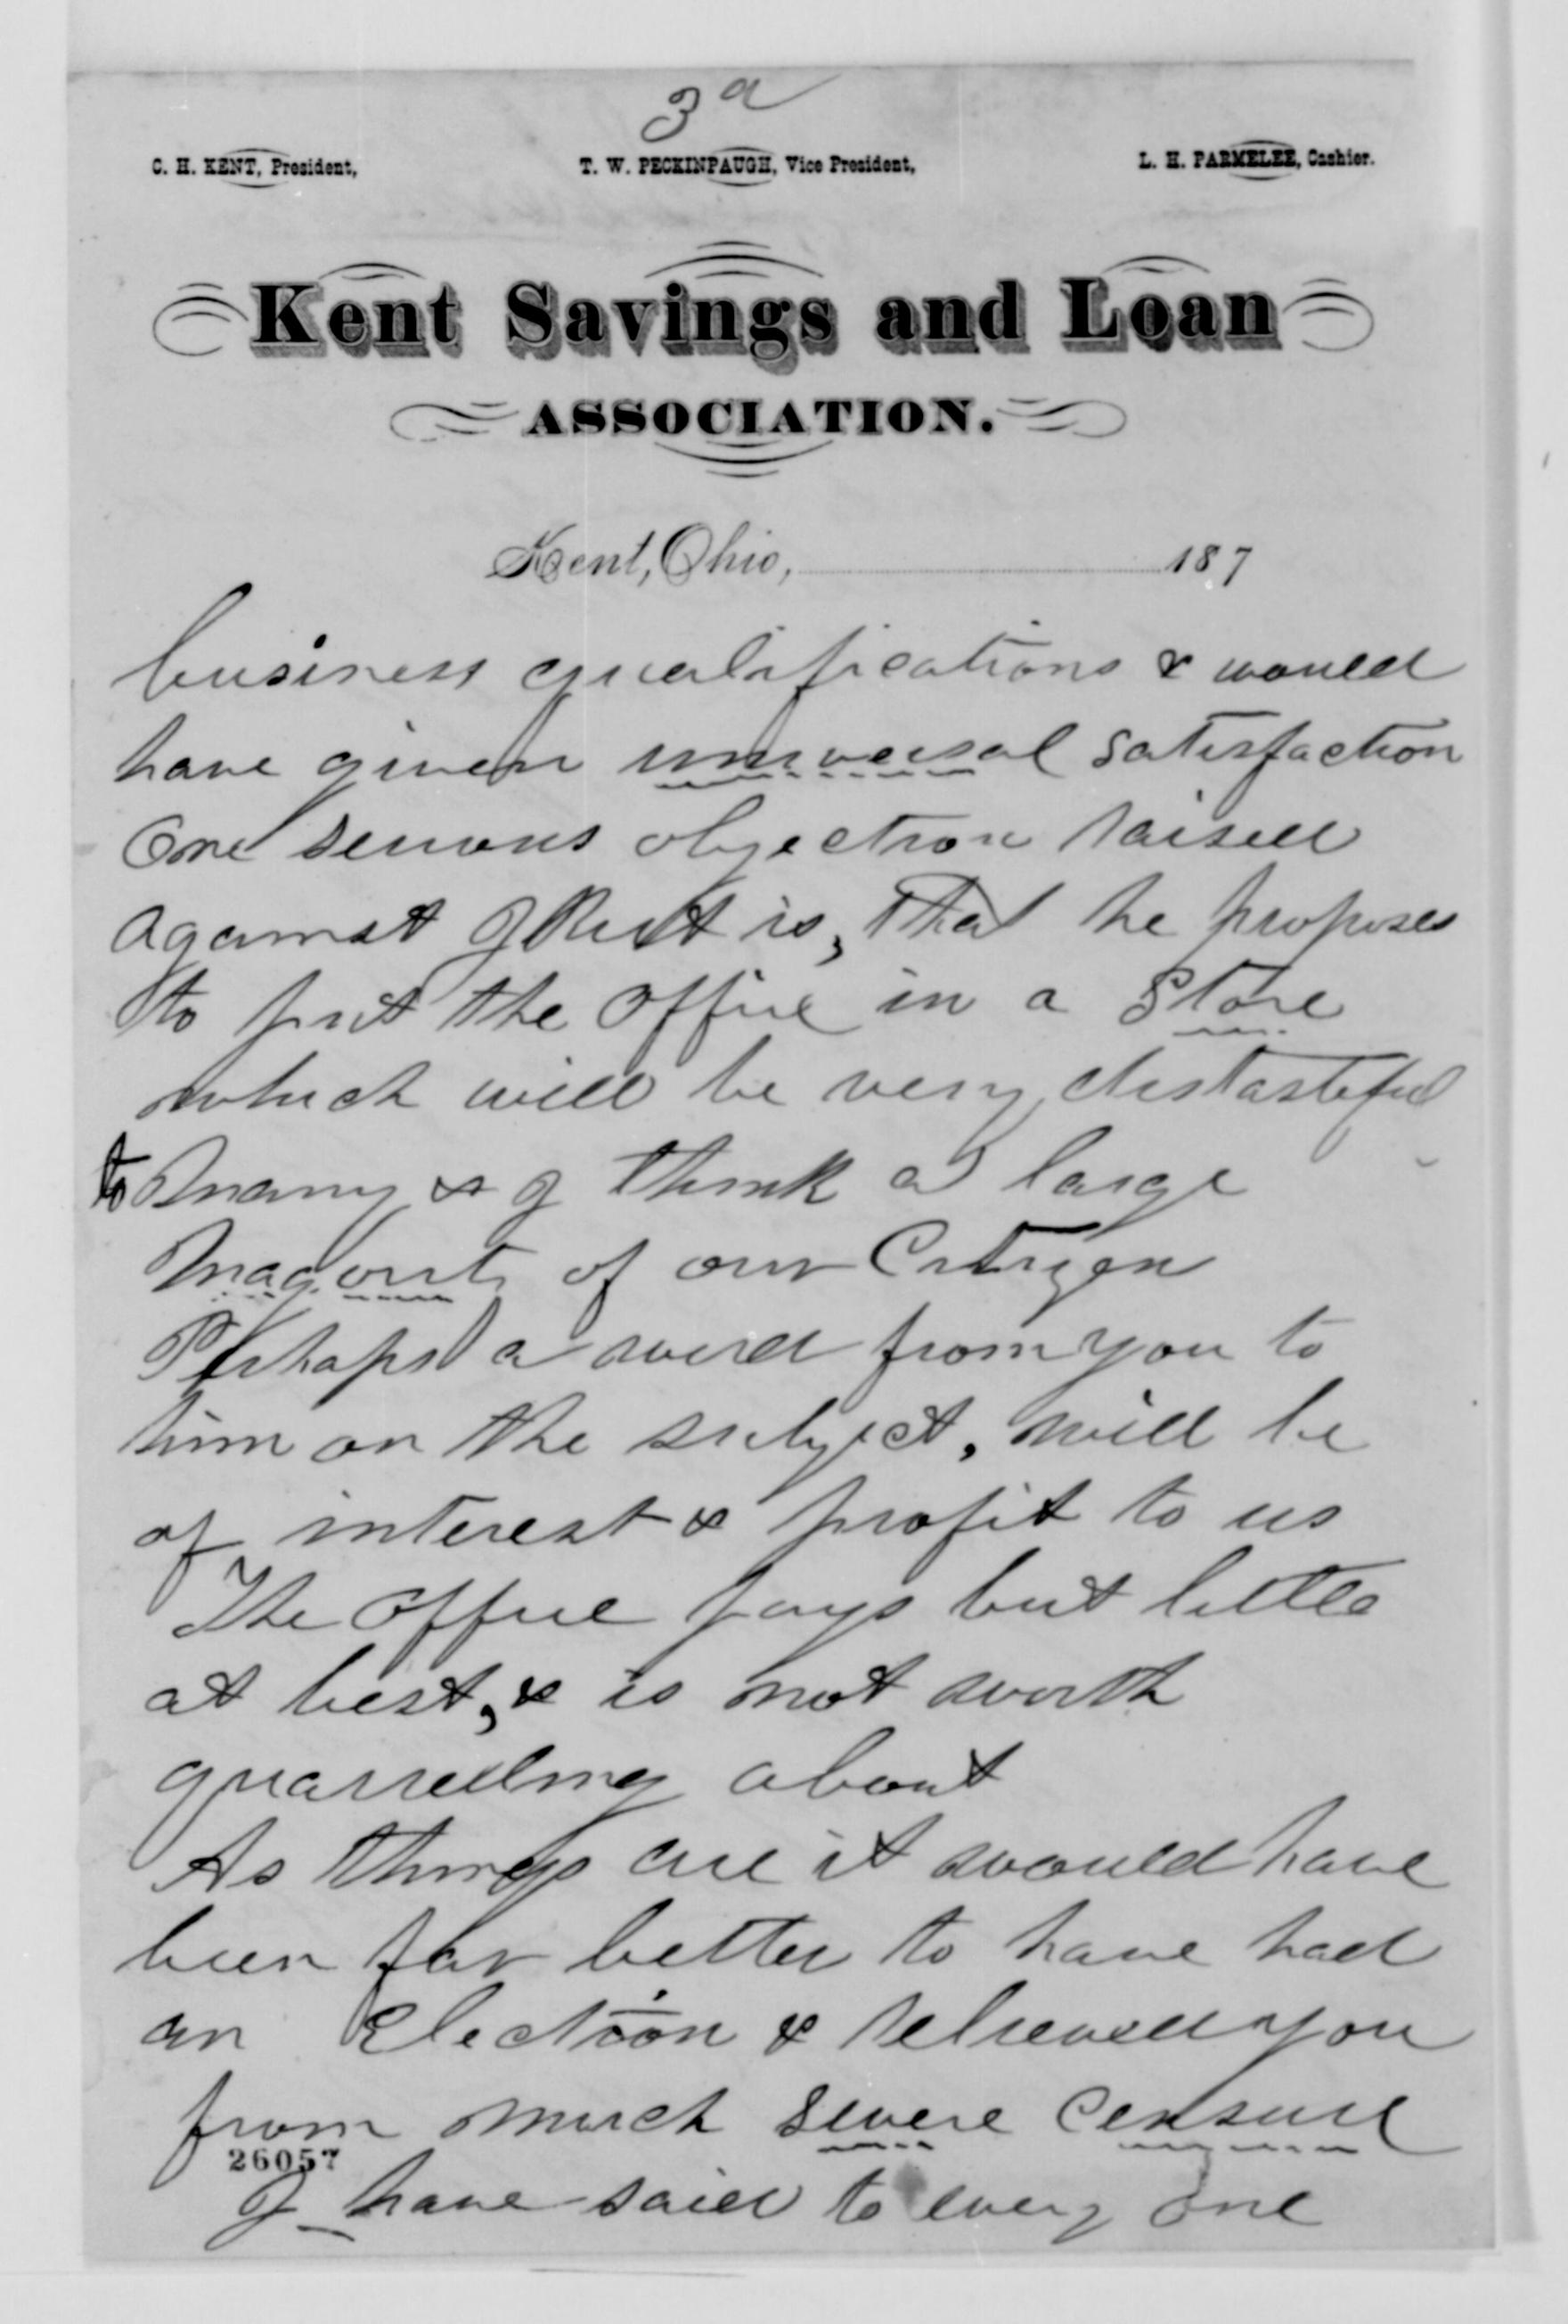 3d
C. H. KENT, President,
T. W. PECKINPAUGH, Vice President,
L. H. PARMELEE, Cashier.
Kent Savings and Loan
ASSOCIATION.
Kent, Ohio, 187
business qualifications & would
have given universal satisfaction
One serious objection raised
against is, that he proposes
to put the office in a Store
which will be very distasteful
to many & I think a large
Magority of our Citizen
Perhaps a word from you to
him on the subject, will be
of interest & profit to us
The office pays but little
at best, & is not worth
quarreling about
As things are it would have
been far better to have had
an Election & relieved you
from much severe censure
26057
I have said to every one